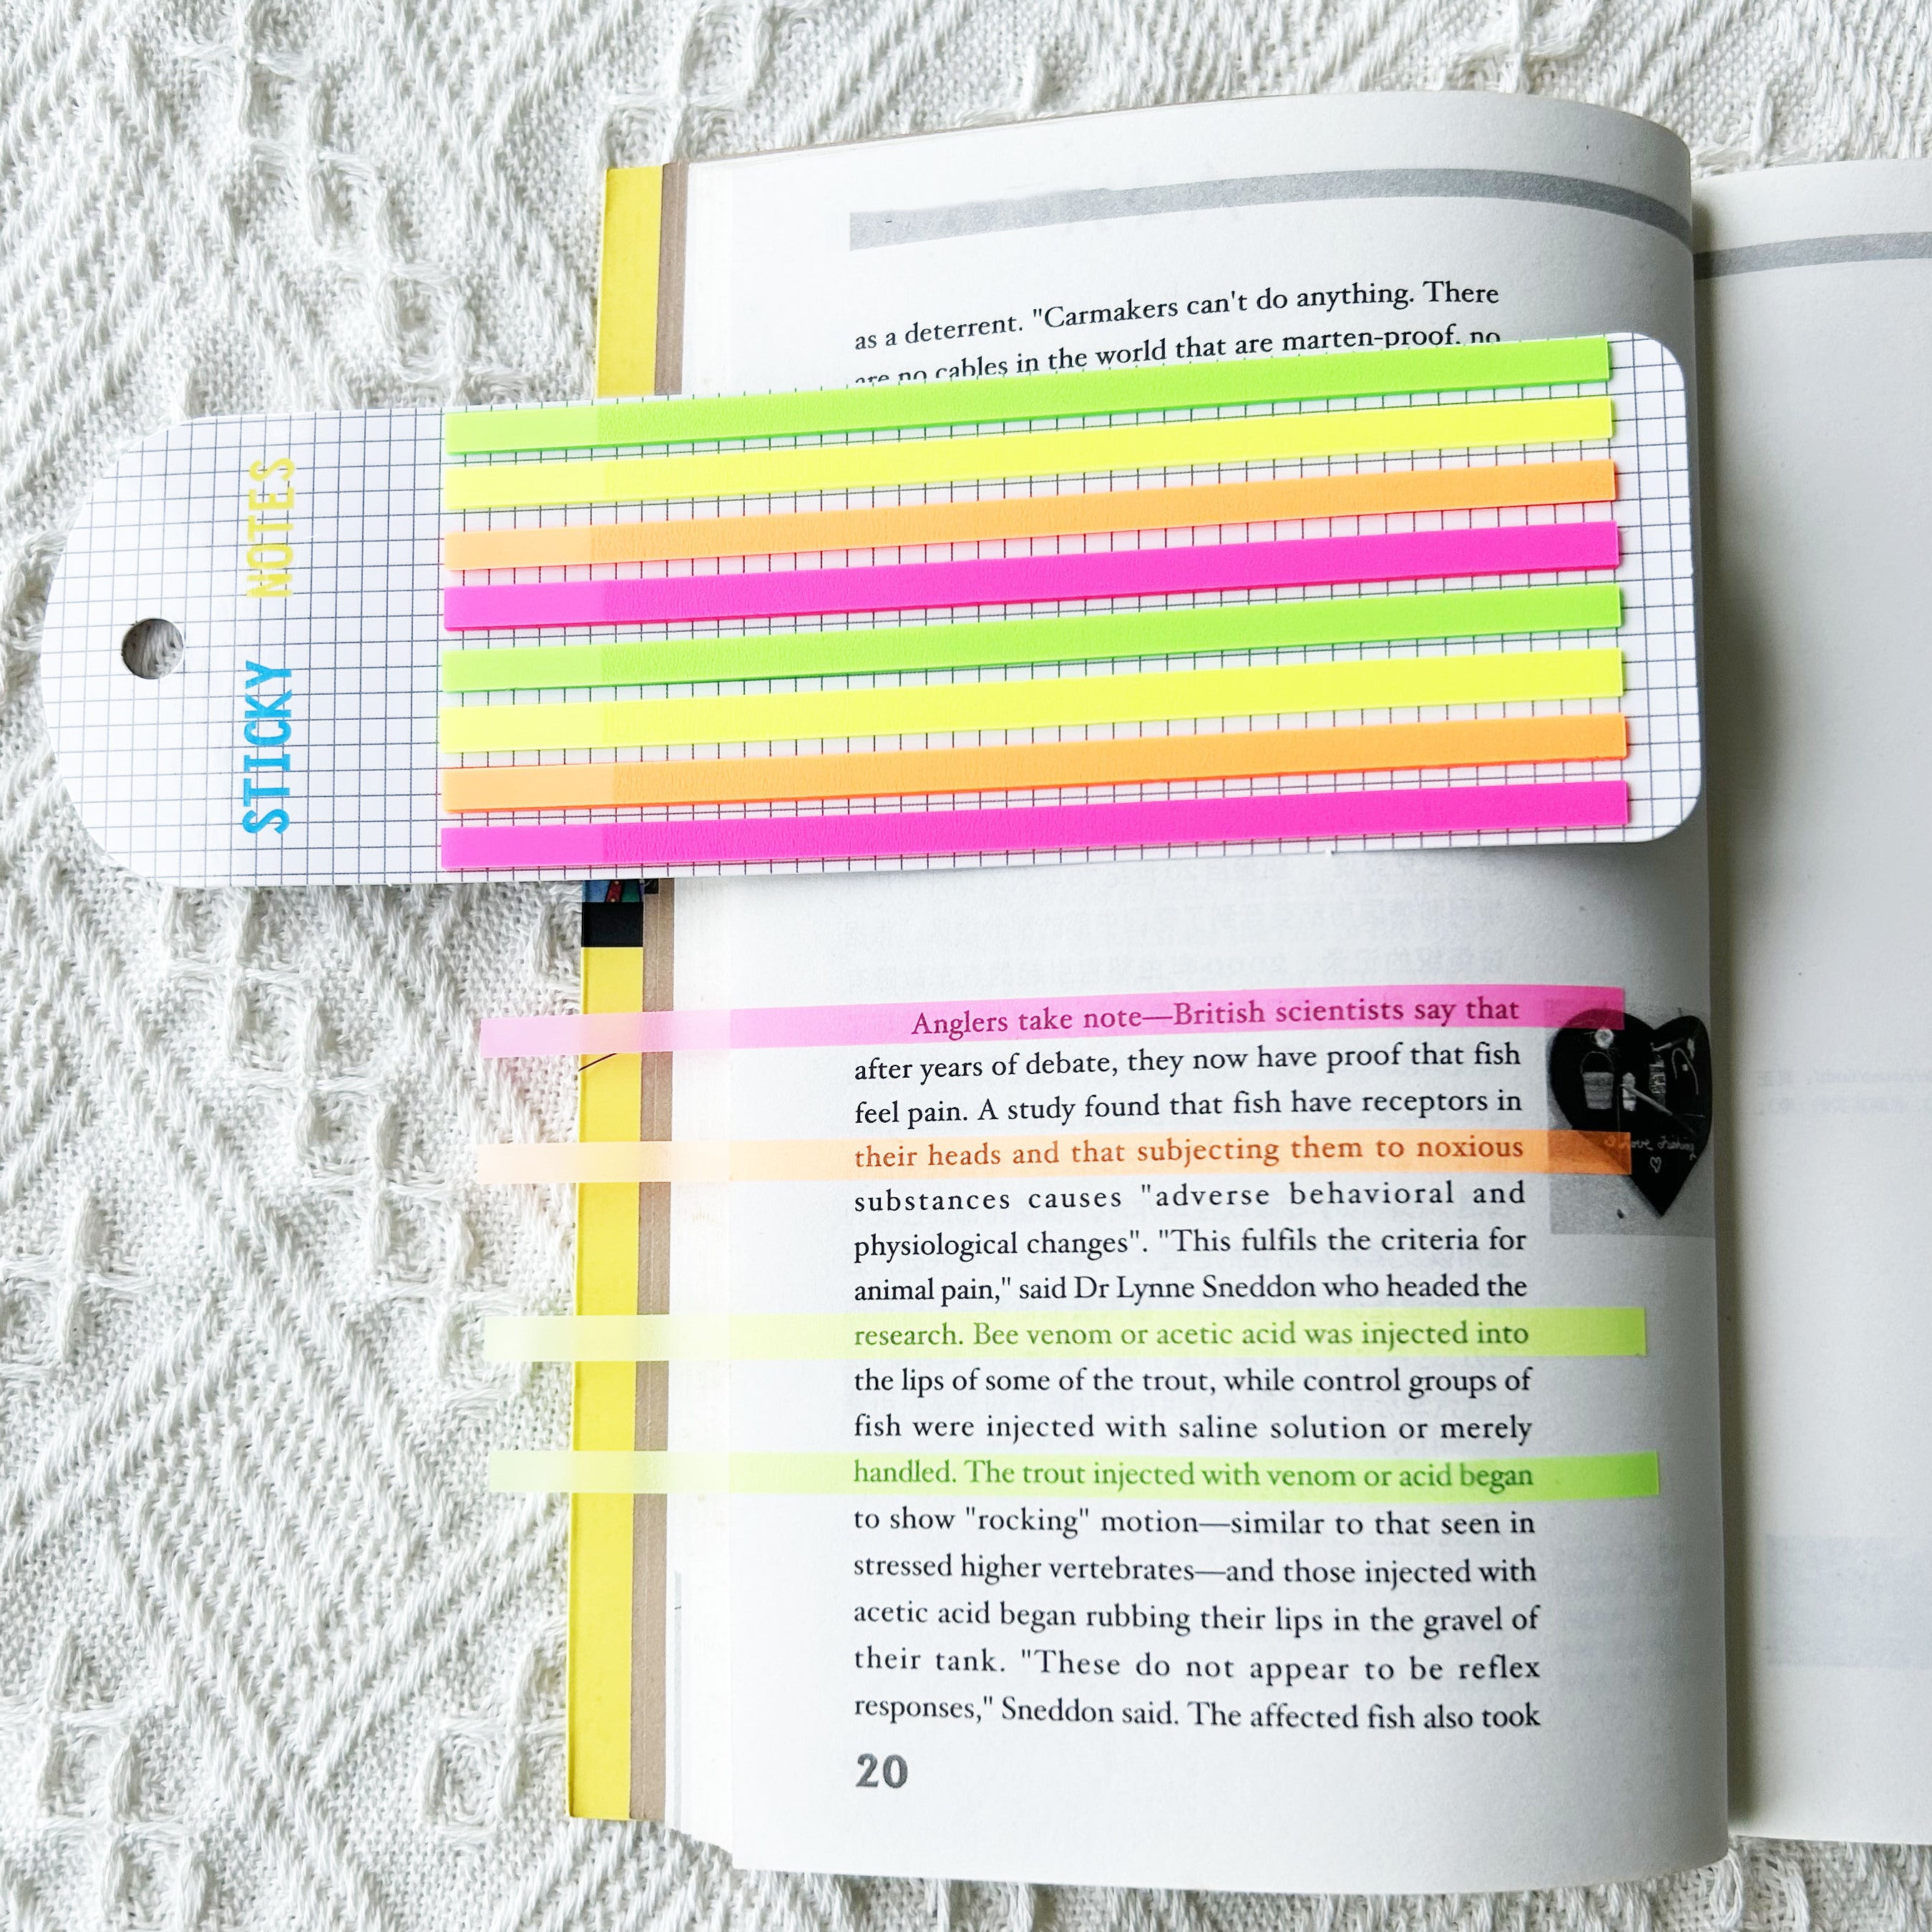 as a deterrent. "Carmakers can't do anything. There
are no cables in the world that are marten-proof, no
STICKY NOTES
Anglers take note—British scientists say that
after years of debate, they now have proof that fish
feel pain. A study found that fish have receptors in
their heads and that subjecting them to noxious
substances causes "adverse behavioral and
physiological changes". "This fulfils the criteria for
animal pain," said Dr Lynne Sneddon who headed the
research. Bee venom or acetic acid was injected into
the lips of some of the trout, while control groups of
fish were injected with saline solution or merely
handled. The trout injected with venom or acid began
to show "rocking" motion—similar to that seen in
stressed higher vertebrates—and those injected with
acetic acid began rubbing their lips in the gravel of
their tank. "These do not appear to be reflex
responses," Sneddon said. The affected fish also took
20